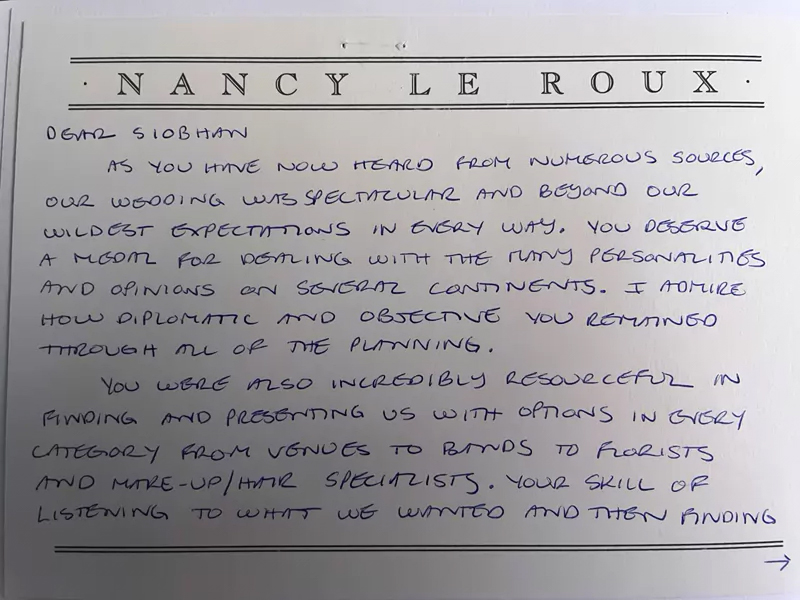 · NANCY LE ROUX ·
DEAR SIOBHAN
AS YOU HAVE NOW HEARD FROM NUMEROUS SOURCES,
OUR WEDDING WAS SPECTACULAR AND BEYOND OUR
WILDEST EXPECTATIONS IN EVERY WAY. YOU DESERVE
A MEDAL FOR DEALING WITH THE MANY PERSONALITIES
AND OPINIONS ON SEVERAL CONTINENTS. I ADMIRE
HOW DIPLOMATIC AND OBJECTIVE YOU REMAINED
THROUGH ALL OF THE PLANNING.
YOU WERE ALSO INCREDIBLY RESOURCEFUL IN
FINDING AND PRESENTING US WITH OPTIONS IN EVERY
CATEGORY FROM VENUES TO BANDS TO FLORISTS
AND MAKE-UP/HAIR SPECIALISTS. YOUR SKILL OF
LISTENING TO WHAT WE WANTED AND THEN FINDING
→